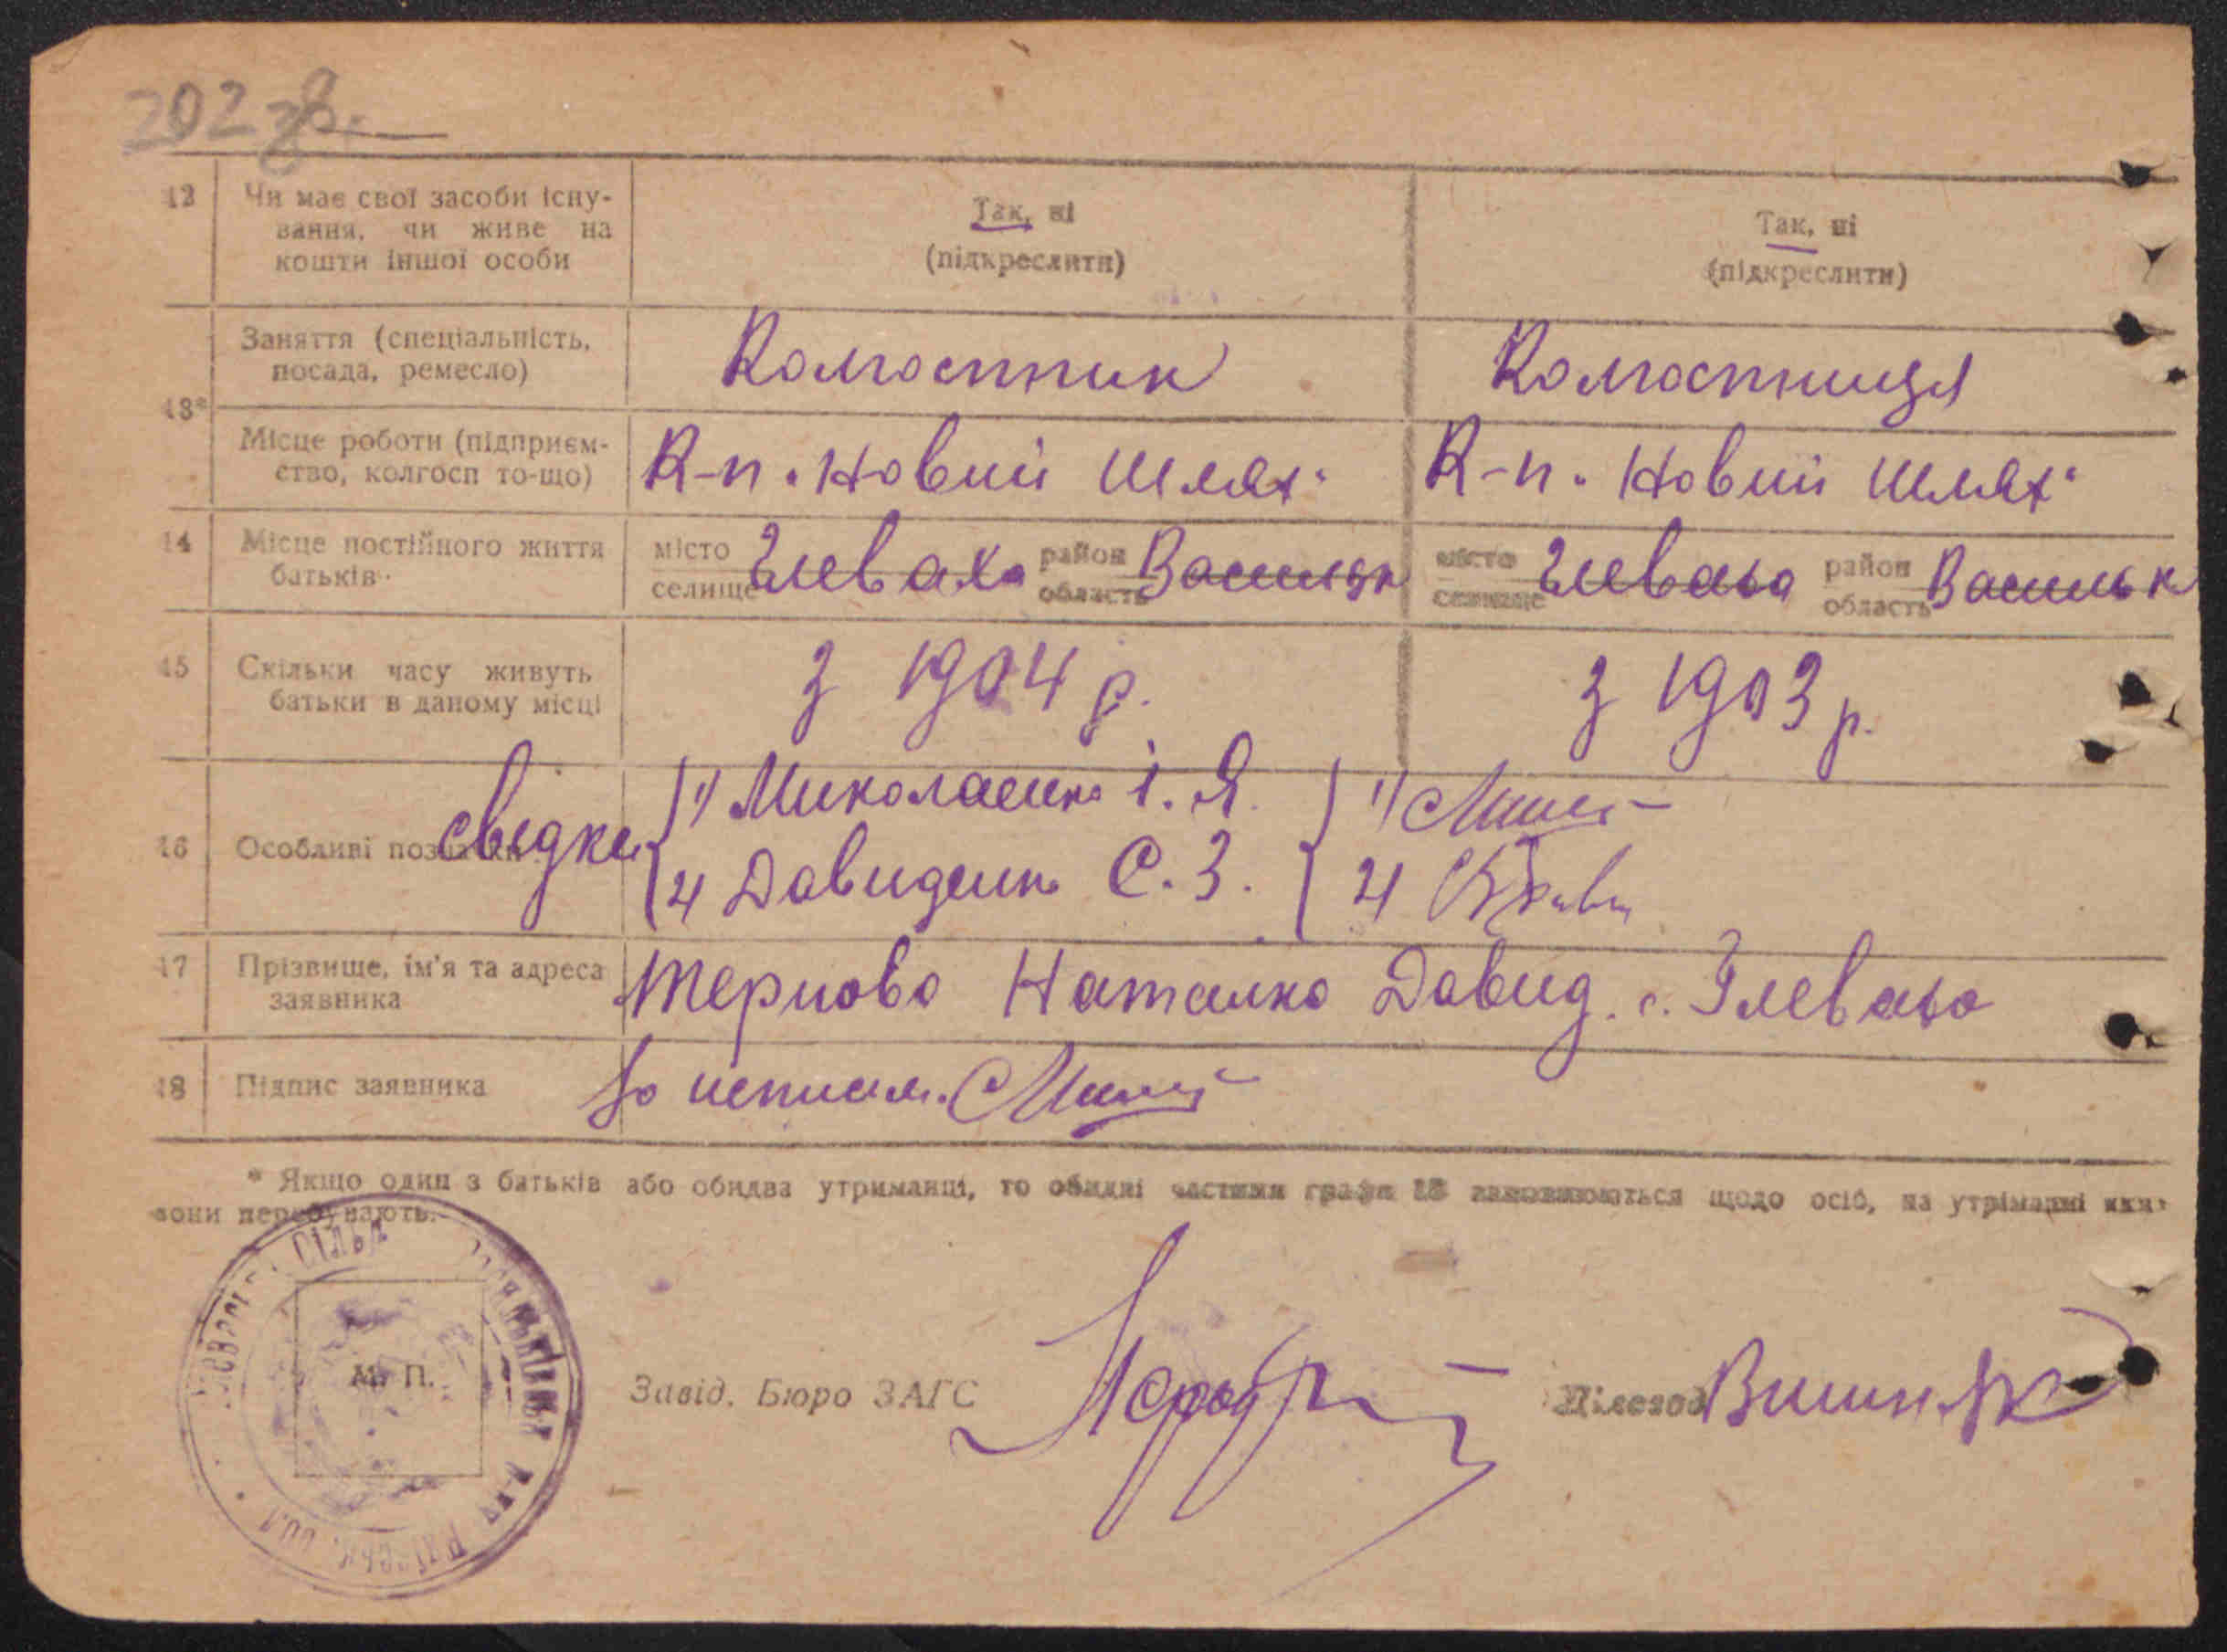 202 зв.
12 Чи має свої засоби існу-
вання, чи живе на
кошти іншої особи
Так, ні
(підкреслити)
Так, ні
(підкреслити)
13*
Заняття (спеціальність,
посада, ремесло)
Колгоспник
Колгоспниця
Місце роботи (підприєм-
ство, колгосп то-що)
К-п. Новий шлях"
К-п. Новий шлях"
14 Місце постійного життя
батьків
місто
селище
Глеваха
район
область
Васильк
місто
селище
Глеваха
район
область
Васильк
15 Скільки часу живуть
батьки в даному місці
з 1904 р.
з 1903 р.
16 Особливі позначки
Свідки
1) Миколаенко І. Я.
2) Давиденко С. З.
1)
2)
17 Прізвище, ім'я та адреса
заявника
Тернова Наталка Давид. с. Глеваха
18 Підпис заявника
за неписьм.
* Якщо один з батьків або обидва утриманці, то обидві частини графи 13 виповнюються щодо осіб, на утриманні яких
вони перебувають.
М. П.
Завід. Бюро ЗАГС
Діловод